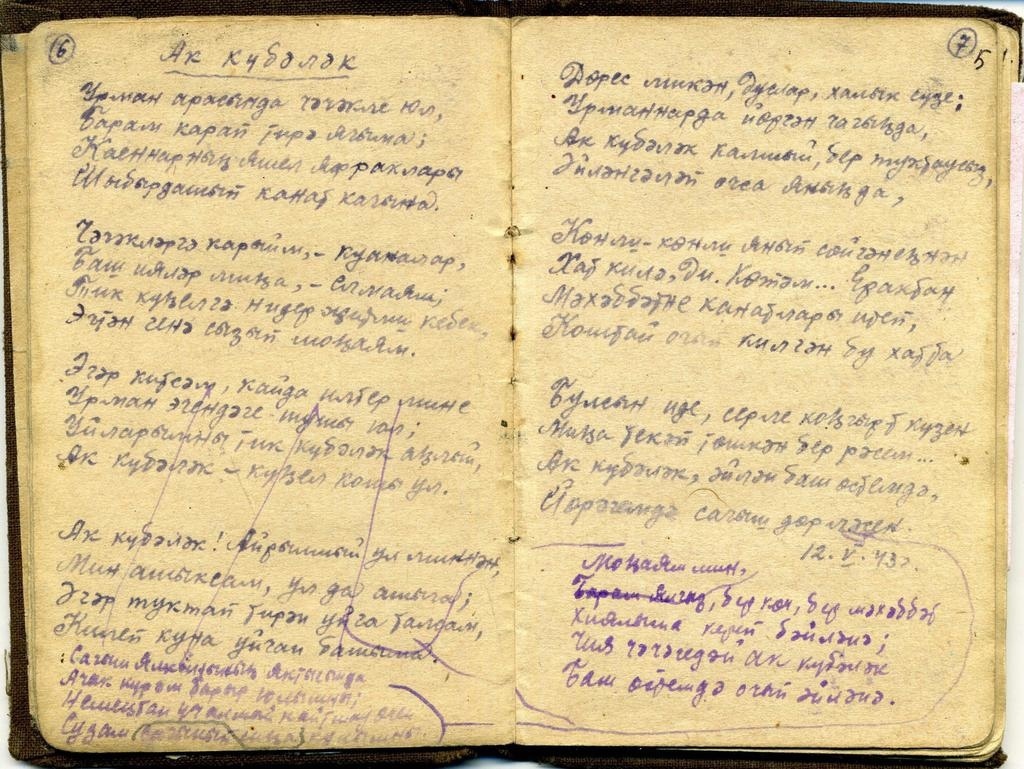 6
Ак күбәләк
Урман арасында чәчәкле юл,
Барам карап тирә ягыма;
Каеннарның яшел яфраклары
Шыбырдашып канат кагына.
Чәчәкләргә карыйм, - куаналар,
Баш ияләр миңа, - елмаям;
Тик күңелгә нидер җитми кебек,
Эчтән генә сызып моңаям.
Әгәр китсәм, кайда илтер мине
Урман эчендәге юл;
Уйларымны тик күбәләк аңлый,
Ак күбәләк - күңел кошы ул.
Ак күбәләк! Айрылмый ул миннән,
Мин ашыксам, ул да ашыга;
Әгәр туктап тирән уйга талсам,
Килеп куна уйчан башыма.
Сагыш ялкынының яктысында
Ачык күрәм барыр юлымны;
Немецтан үч алмый кайтмас өчен
Сузам кулымны.
7
5
Дөрес микән, дуслар, халык сүзе:
Урманнарда йөргән чагыңда,
Ак күбәләк калмый, бер туктаусыз,
Әйләнгәләп очса яныңда,
Көнли-көнли янып сөйгәнеңнән
Хат килә, ди. Көтәм... Ерактан
Мәхәббәтне канатлары итеп,
Коштай очып килгән бу хатта
Булсын иде, серле коңгырт күзең
Миңа текәп төшкән бер рәсем...
Ак күбәләк, әйлән баш өстемдә,
Йөрәгемдә сагыш дөрләсен.
12. V. 43.
Моңаям мин,
Барам, бер көч, бер мәхәббәт
Хыялыма кереп бәйләнә;
Чия чәчәгедәй ак күбәләк
Баш өстемдә очып әйләнә.